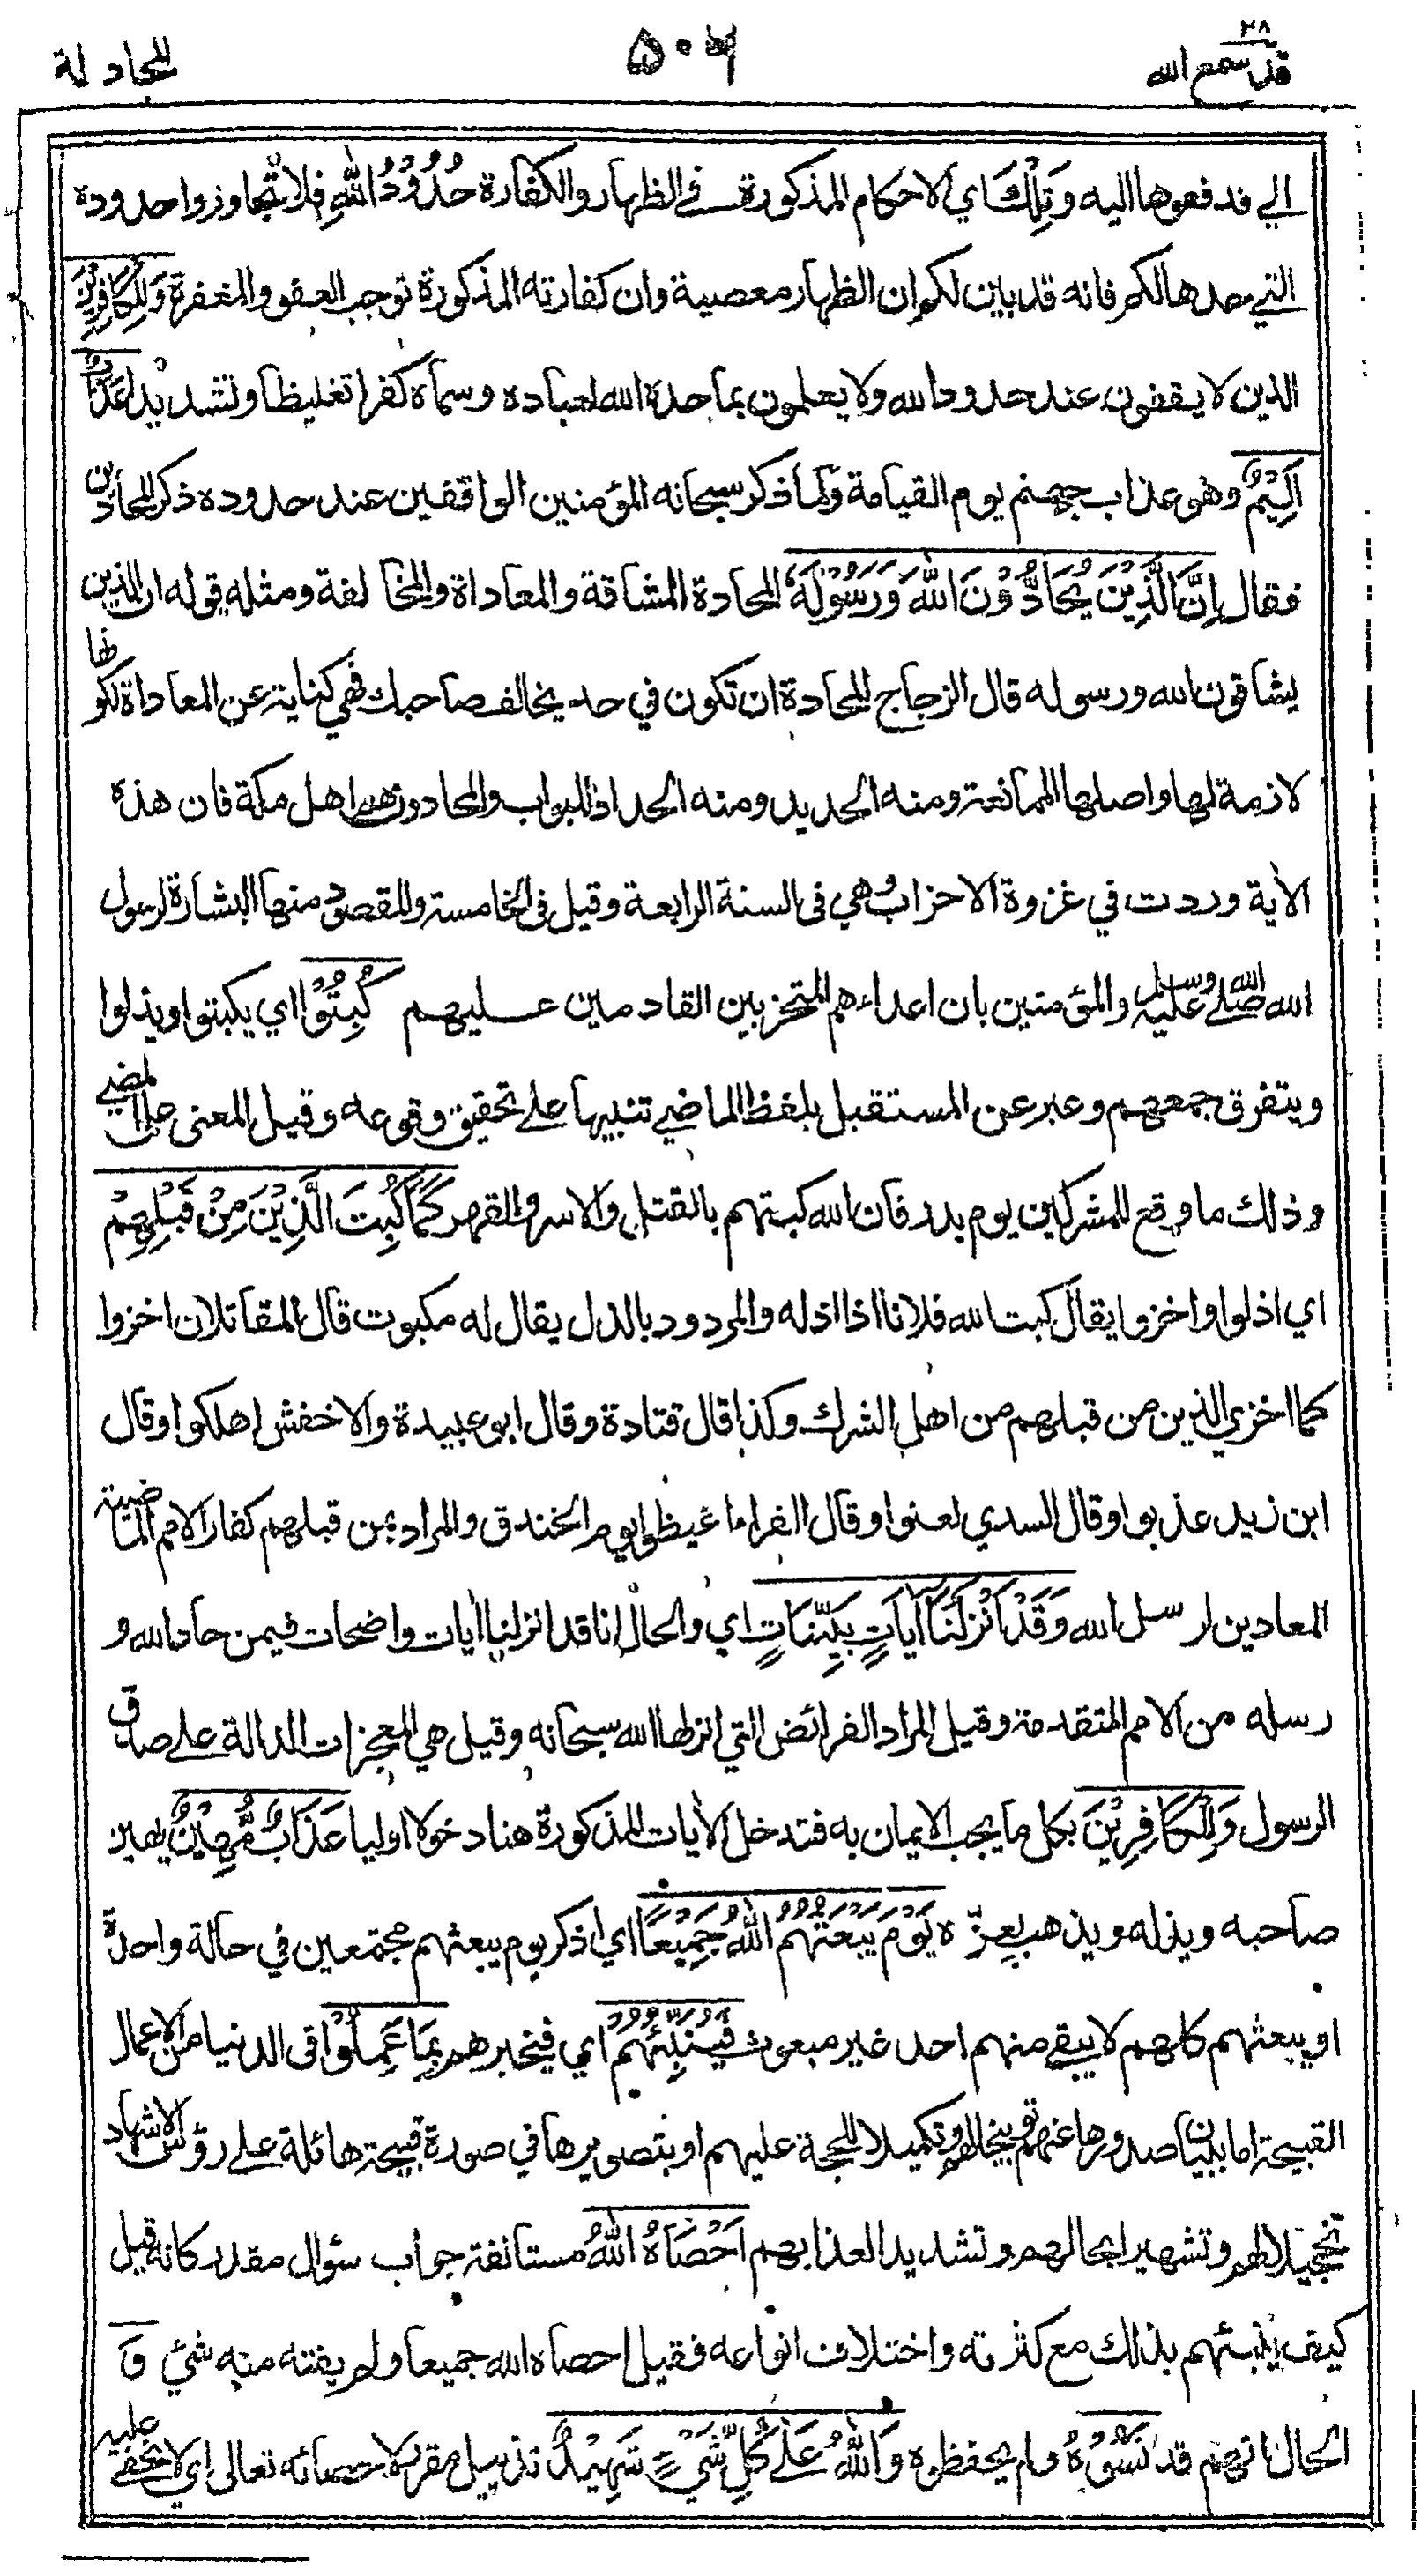 قد سمع الله ٢٨
٥٠٦
المجادلة
الي فدفعوها اليه وَتِلْكَ اي الاحكام المذكورة في الظهار والكفارة حُدُوْدُ اللهِ فلا تتجاوزوا حدوده
التي حدها لكم فانه قد بين لكم ان الظهار معصية وان كفارته المذكورة توجب العفو والمغفرة وَلِلْكَافِرِيْنَ
الذين لا يقفون عند حدود الله ولا يعملون بما حدة الله لعباده وسماه كفرا تغليظا وتشديدا عَذَابٌ
اَلِيْمٌ وهو عذاب جهنم يوم القيامة ولما ذكر سبحانه المؤمنين الواقفين عند حدوده ذكر المحادين
فقال اِنَّ الَّذِيْنَ يُحَادُّوْنَ اللهَ وَرَسُوْلَهٗ المحادة المشاقة والمعاداة والمخالفة ومثله قوله ان الذين
يشاقون الله ورسوله قال الزجاج المحادة ان تكون في حد يخالف صاحبك فهي كناية عن المعاداة لكونها
لازمة لها واصلها الممانعة ومنه الحديد ومنه الحداد للبواب والمحادون هم اهل مكة فان هذه
الاٰية وردت في غزوة الاحزاب وهي في السنة الرابعة وقيل في الخامسة والمقصود منها البشارة لرسول
الله صلى الله عليه وسلم والمؤمنين بان اعداءهم المتحزبين القادمين عليهم كُبِتُوْا اي يكبتوا ويذلوا
ويتفرق جمعهم وعبر عن المستقبل بلفظ الماضي تنبيها على تحقيق وقوعه وقيل المعنى على المضي
وذلك ما وقع للمشركين يوم بدر فان الله كبتهم بالقتل والاسر والقهر كَمَا كُبِتَ الَّذِيْنَ مِنْ قَبْلِهِمْ
اي اذلوا واخزوا يقال كبت الله فلانا اذا اذله والمردود بالذل يقال له مكبوت قال المقاتلان اخزوا
كما اخزي الذين من قبلهم من اهل الشرك وكذا قال قتادة وقال ابو عبيدة والاخفش اهلكوا وقال
ابن زيد عذبوا وقال السدي لعنوا وقال الفراء اغيظوا يوم الخندق والمراد بمن قبلهم كفار الامم الماضية
المعادين لرسل الله وَقَدْ اَنْزَلْنَا اٰيَاتٍ بَيِّنَاتٍ اي والحال انا قد انزلنا اٰيات واضحات فيمن حاد الله و
رسله من الامم المتقدمة وقيل المراد الفرائض التي انزلها الله سبحانه وقيل هي المعجزات الدالة على صدق
الرسول وَلِلْكَافِرِيْنَ بكل ما يجب الايمان به فتدخل الاٰيات المذكورة هنا دخولا اوليا عَذَابٌ مُّهِيْنٌ يهين
صاحبه ويذله ويذهب بعزّه يَوْمَ يَبْعَثُهُمُ اللهُ جَمِيْعًا اي اذكر يوم يبعثهم مجتمعين في حالة واحدة
او يبعثهم كلهم لا يبقى منهم احد غير مبعوث فَيُنَبِّئُهُمْ اي فيخبرهم بِمَا عَمِلُوْا في الدنيا من الاعمال
القبيحة اما ببيان صدورها عنهم توبيخا لهم وتكميلا للحجة عليهم او بتصويرها في صورة قبيحة هائلة على رؤس الاشهاد
تخجيلا لهم وتشهيرا بحالهم وتشديدا لعذابهم اَحْصَاهُ اللهُ مستانفة جواب سؤال مقدر كانه قيل
كيف ينبئهم بذلك مع كثرته واختلاف انواعه فقيل احصاه الله جميعا ولم يفته منه شئ وَ
الحال انهم قد نَسُوْهُ ولم يحفظوه وَاللهُ عَلٰى كُلِّ شَيْءٍ شَهِيْدٌ تذييل مقرر لاحصائه تعالى اي لا يخفى عليه